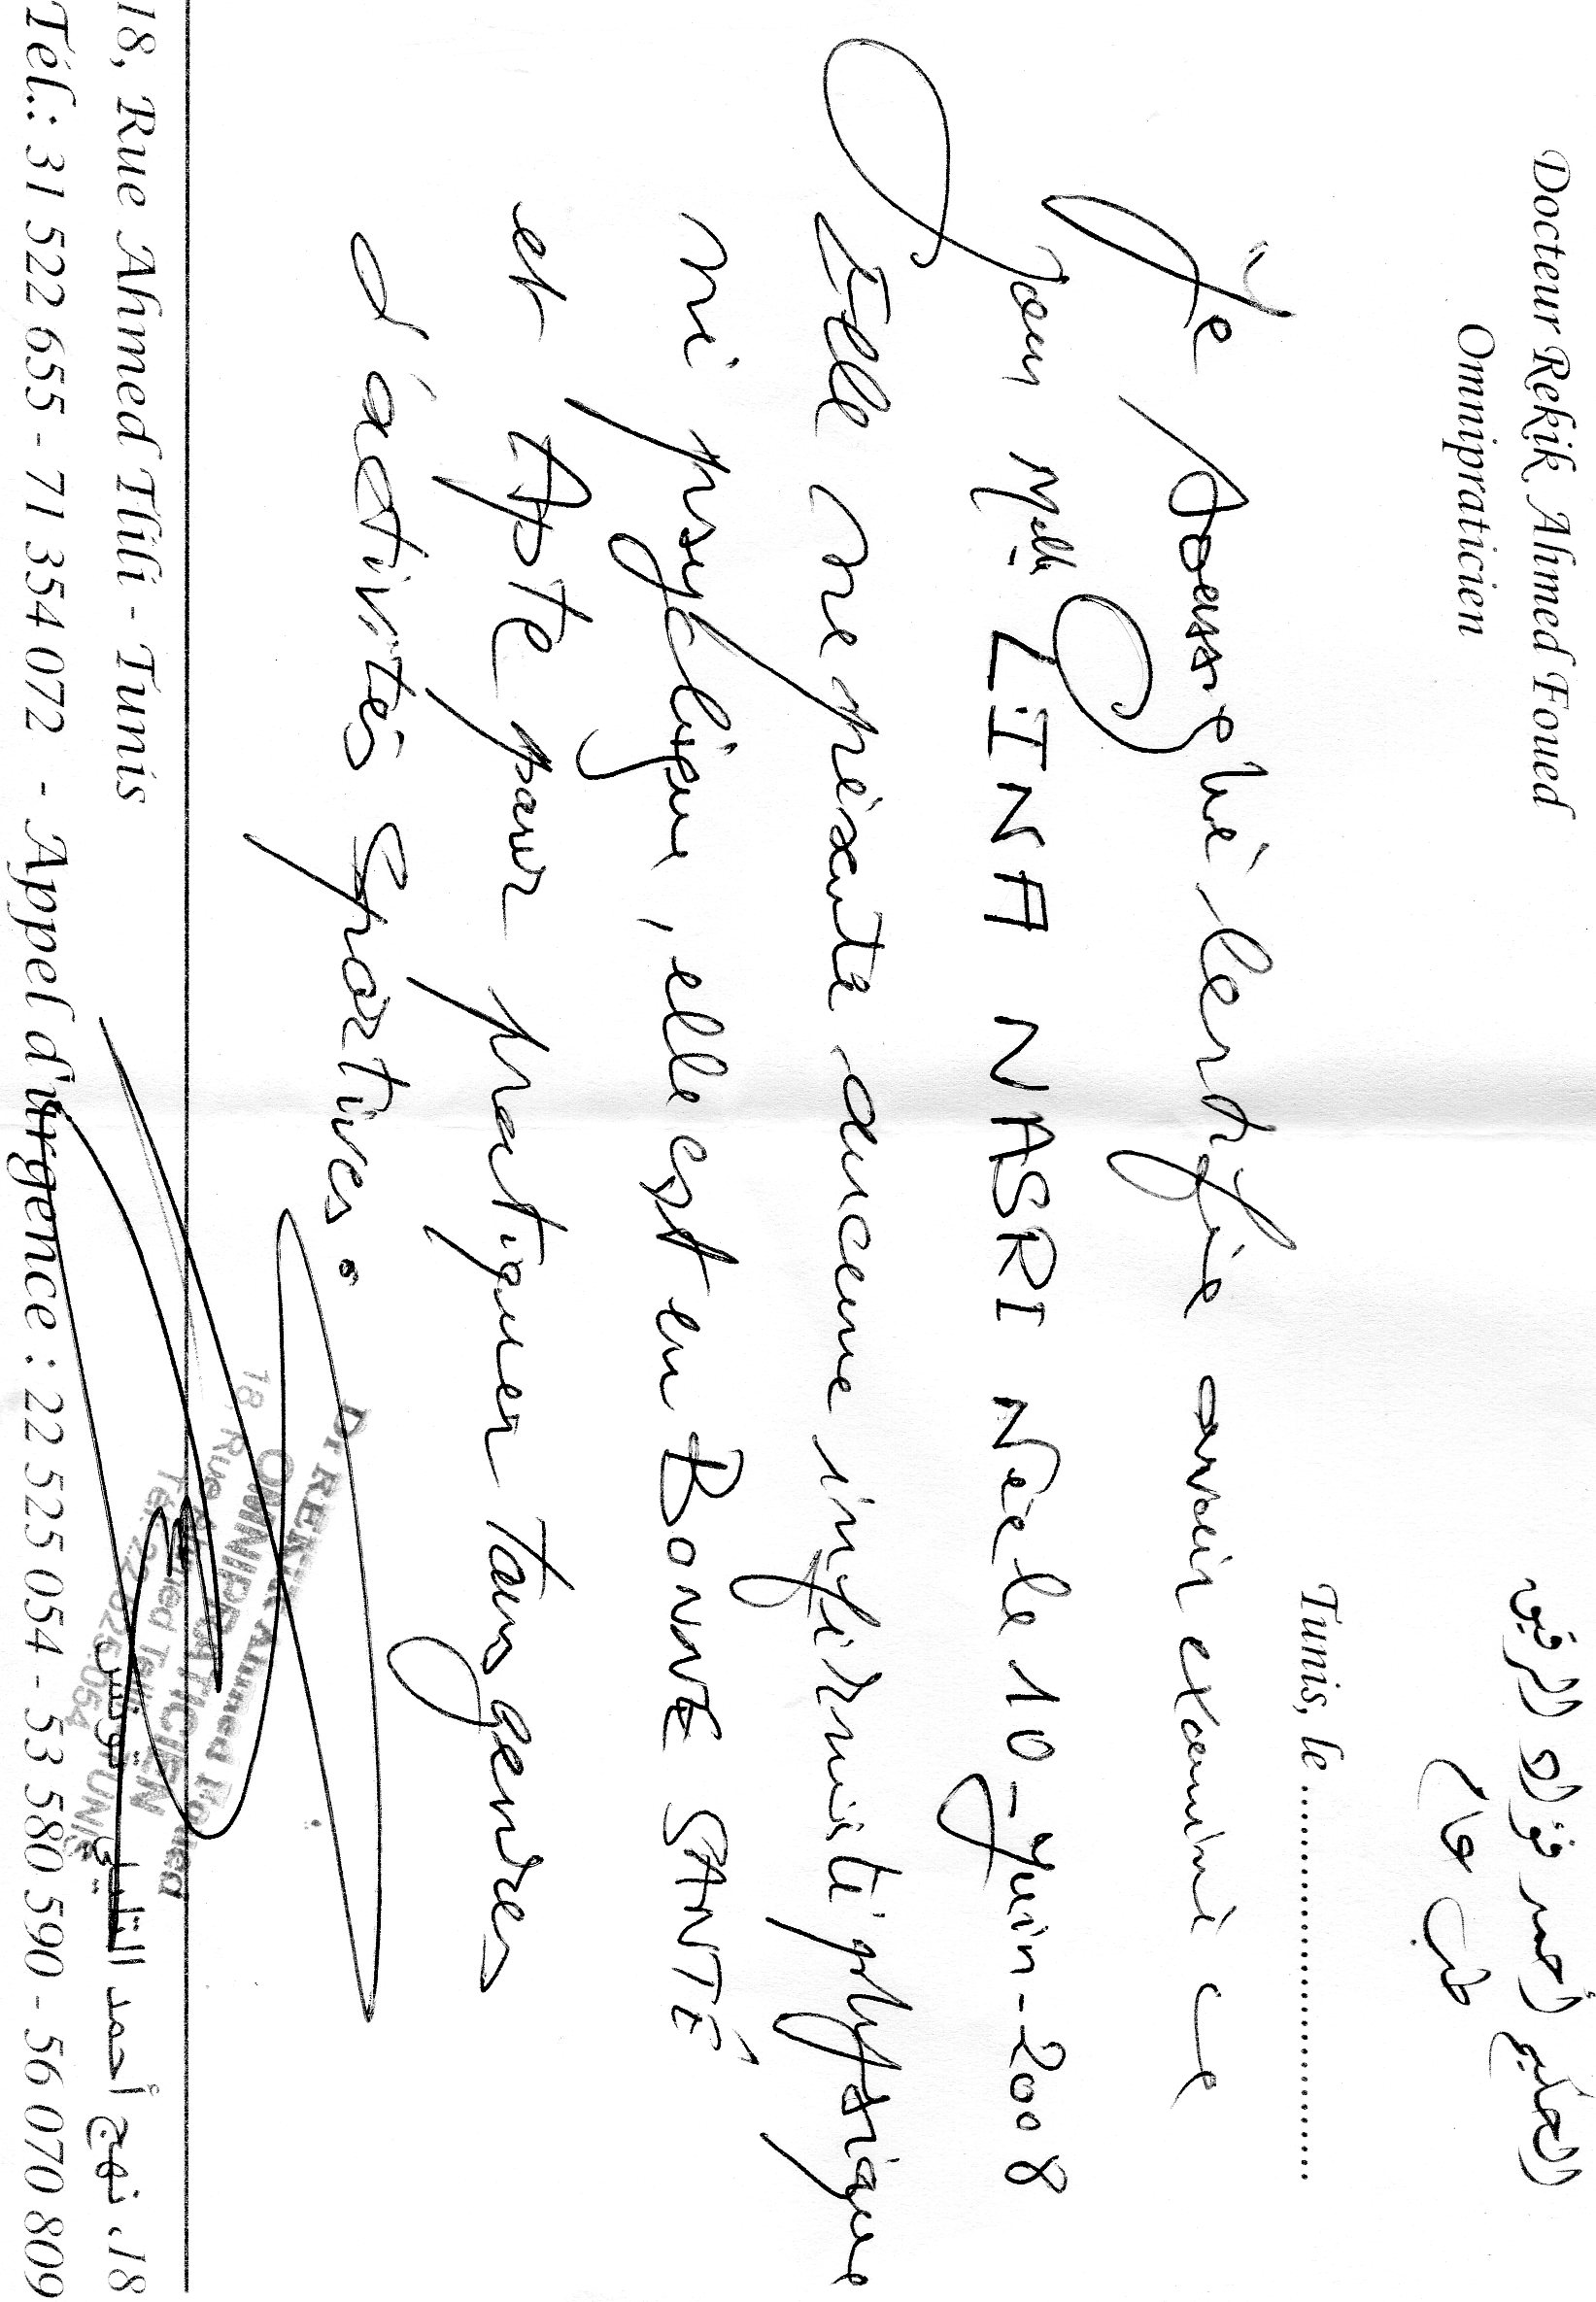 Docteur Rekik Ahmed Foued
Omnipraticien
الحكيم أحمد فؤاد الرقيق
طب عام
Tunis, le ........................................
Je soussigné certifie avoir examiné ce
jour Melle LINA NASRI Née le 10-Juin-2008
Elle ne présente aucune infirmité physique
ni psychique, elle est en BONNE SANTÉ
et Apte pour pratiquer tous genres
d'activités Sportives.
Dr REKIK Ahmed Foued
OMNIPRATICIEN
18, Rue Ahmed Telili TUNIS
Tél: 22 525 054
18, Rue Ahmed Tlili - Tunis
18، نهج أحمد التليلي تونس
Tél.: 31 522 655 - 71 354 072 - Appel d'urgence : 22 525 054 - 53 580 590 - 56 070 809